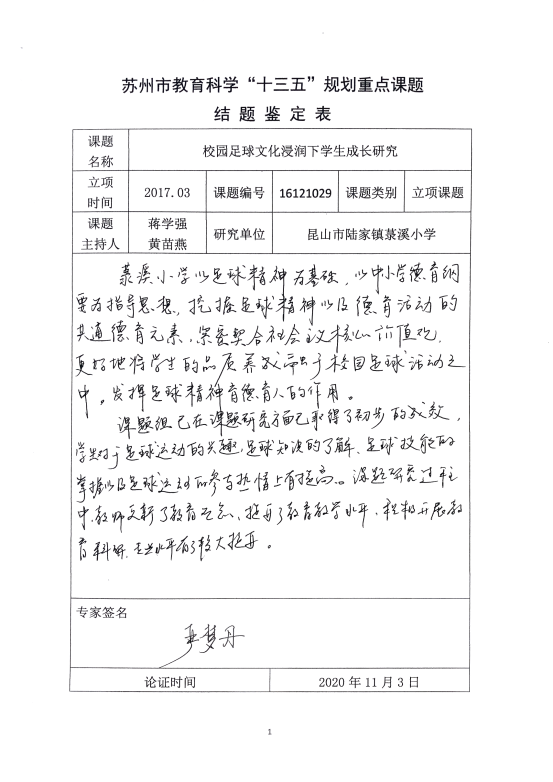 苏州市教育科学“十三五”规划重点课题
结 题 鉴 定 表
课题名称
校园足球文化浸润下学生成长研究
立项时间
2017.03
课题编号
16121029
课题类别
立项课题
课题主持人
蒋学强
黄苗燕
研究单位
昆山市陆家镇菉溪小学
菉溪小学以足球精神为基础,以中小学德育纲
要为指导思想,挖掘足球精神以及德育活动的
共通德育元素,紧密契合社会主义核心价值观,
更好地将学生的品质养成寓于校园足球活动之
中。发挥足球精神育德育人的作用。
课题组已在课题研究方面已取得了初步的成效,
学生对于足球运动的兴趣、足球知识的了解、足球技能的
掌握以及足球运动的参与热情上有提高。课题研究过程
中,教师更新了教育理念、提升了教育教学水平,积极开展教
育科研,专业水平有了较大提升。
专家签名
梦丹
论证时间
2020 年 11 月 3 日
1